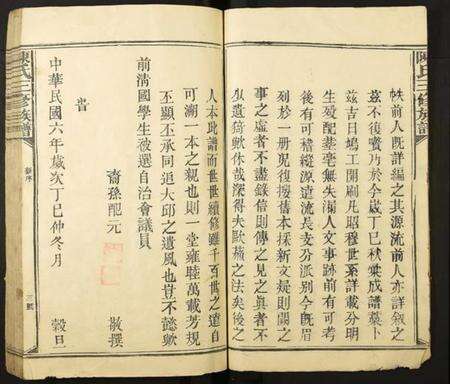 陳氏三修族譜
帙前人既詳編之其源流前人亦詳敘之
茲不復贅乃於今歲丁巳秋業成譜墓卜
茲吉日鳩工開刷凡昭穆世系詳載分明
生歿配塟毫無失漏人文事跡前有可考
後有可稽縱源遠流長支分派別今既眉
列於一册況復搜舊本採新文疑則闕之
事之虛者不盡錄信則傳之見之眞者不
以遺猗歟休哉深得夫歐蘓之法矣後之
人本此譜而世世續修雖千百世之遠自
可溯一本之親也則一堂雍睦萬載芳規
丕顯丕承同追大邱之遺風也豈不懿歟
前淸國學生被選自治會議員
裔孫配元 敬撰
旹
中華民國六年歲次丁巳仲冬月 穀旦
陳氏三修族譜
新序